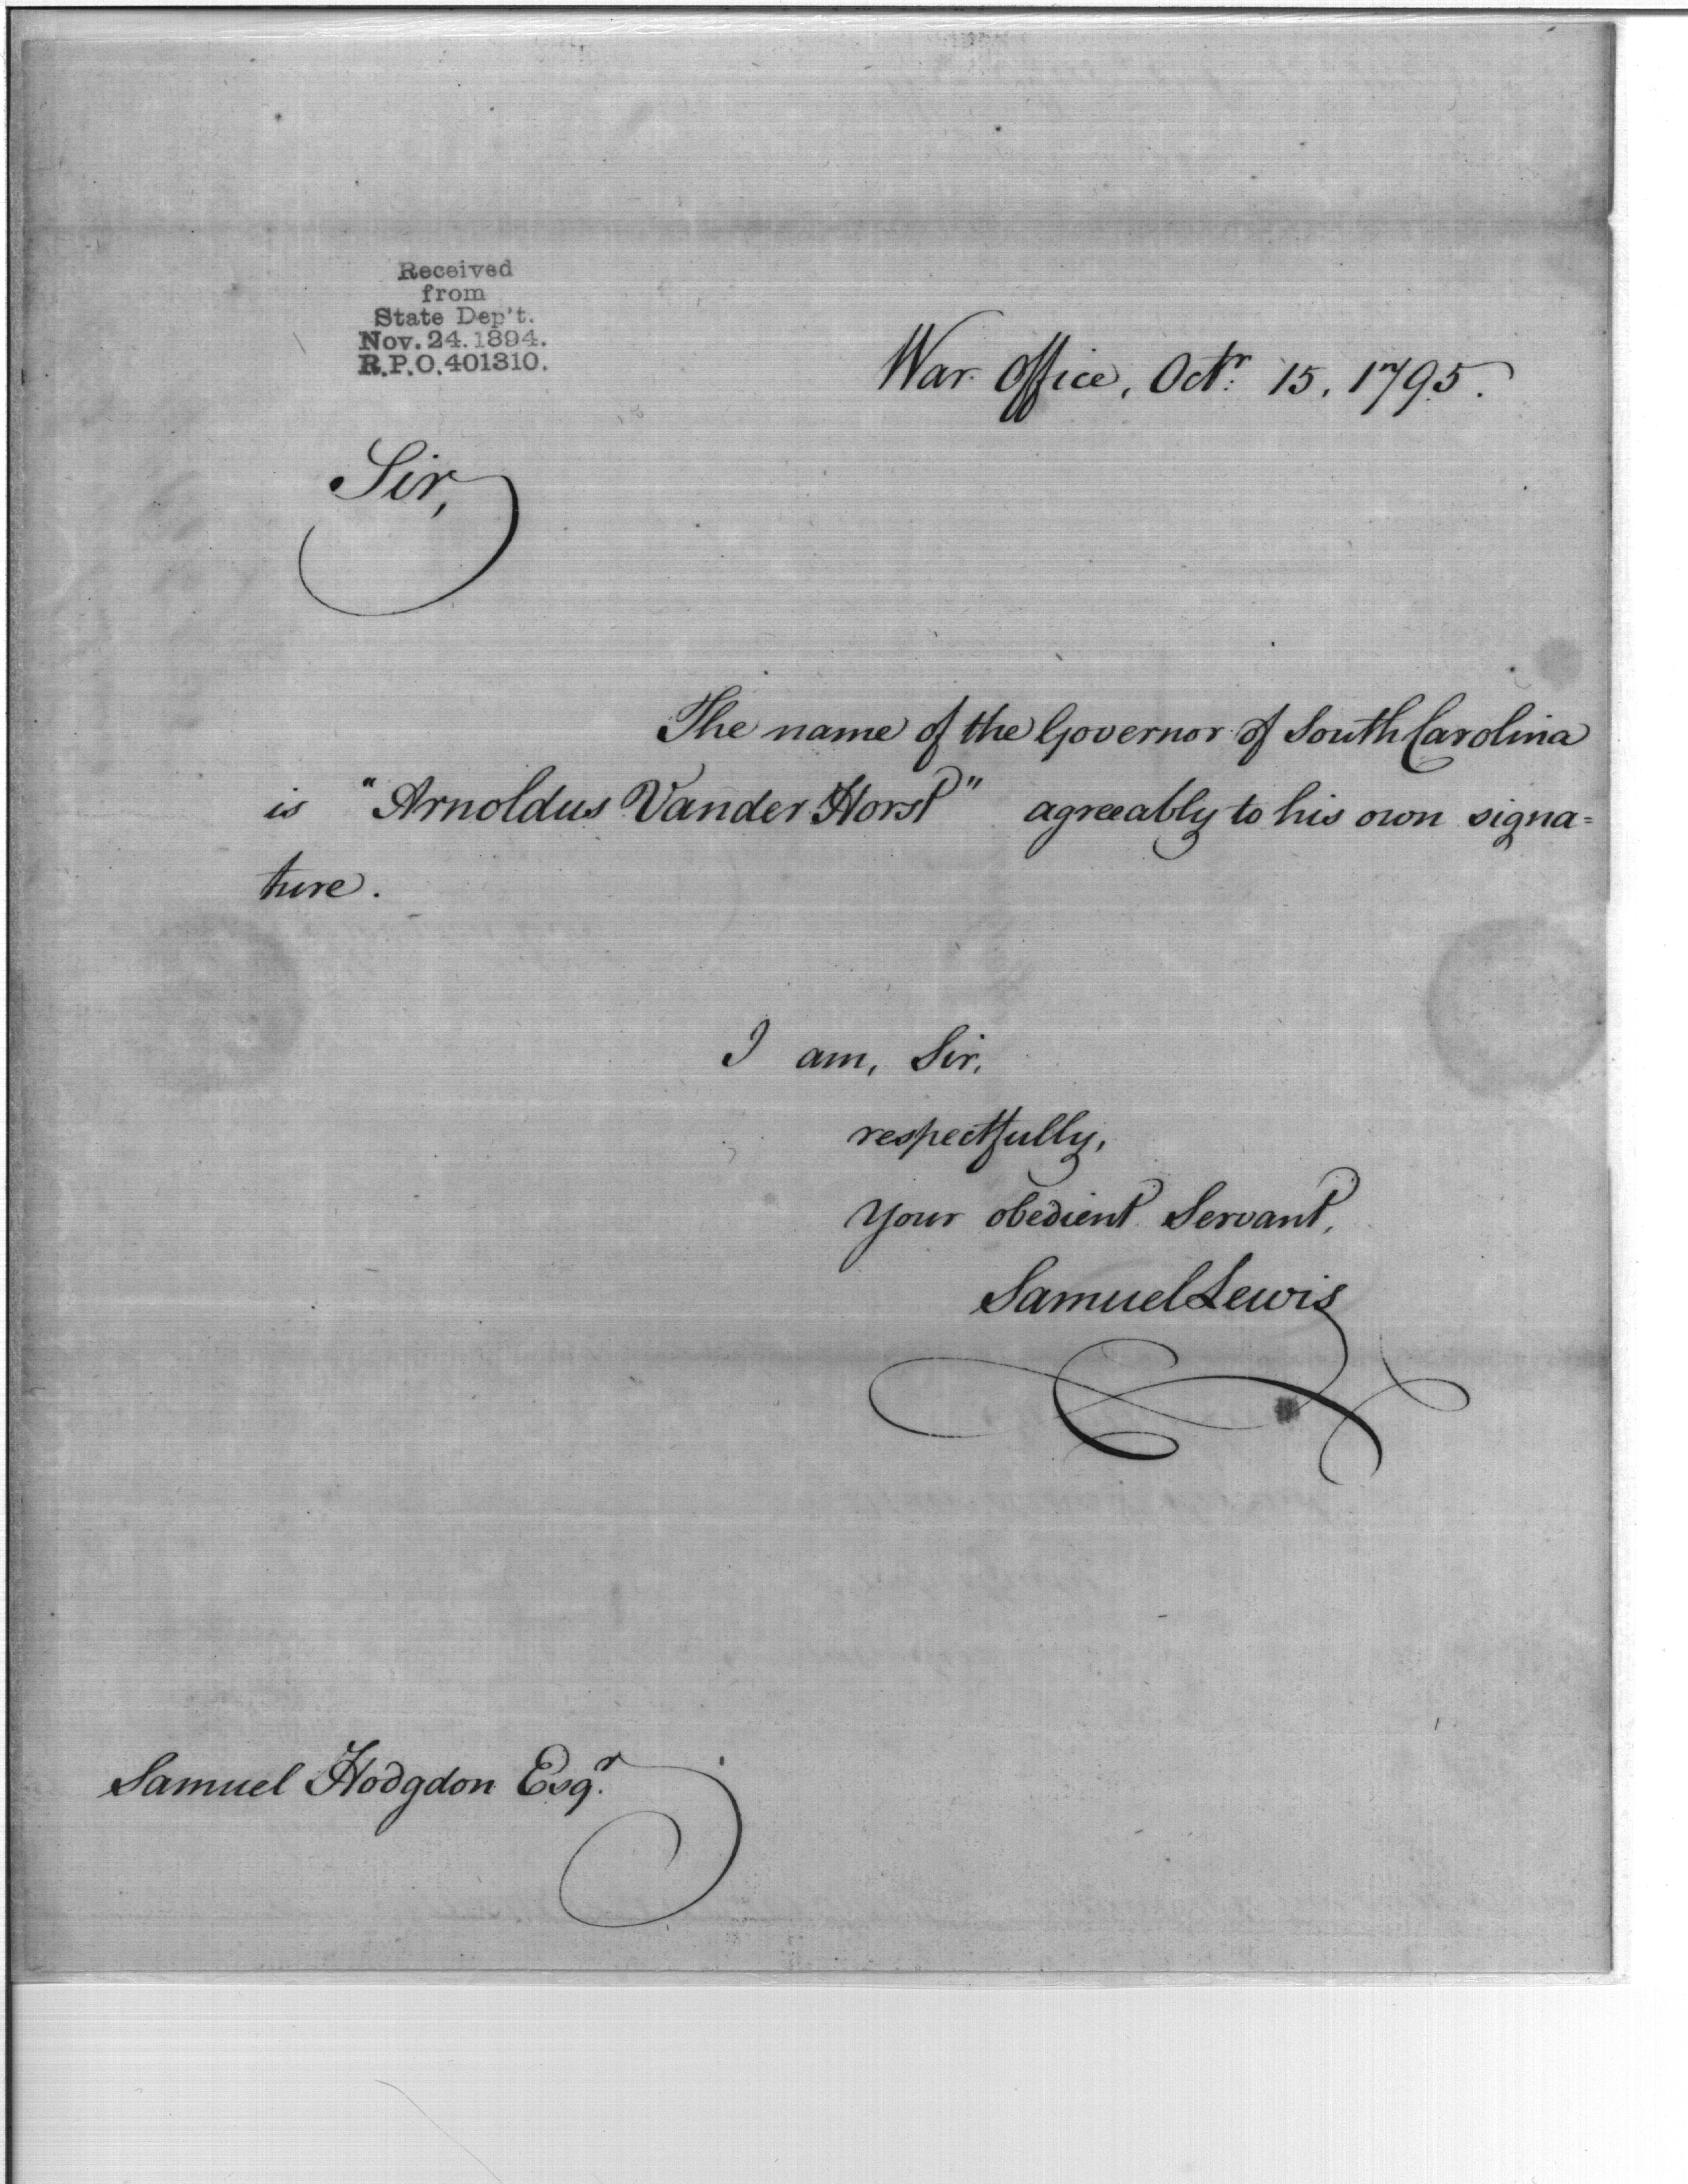 Received
from
State Dep't.
Nov. 24. 1894.
R.P.O. 401310.
War Office, Octr. 15, 1795.
Sir,
The name of the Governor of South Carolina
is "Arnoldus Vander Horst" agreeably to his own signa=
ture.
I am, Sir,
respectfully,
Your obedient Servant,
Samuel Lewis
Samuel Hodgdon Esqr.